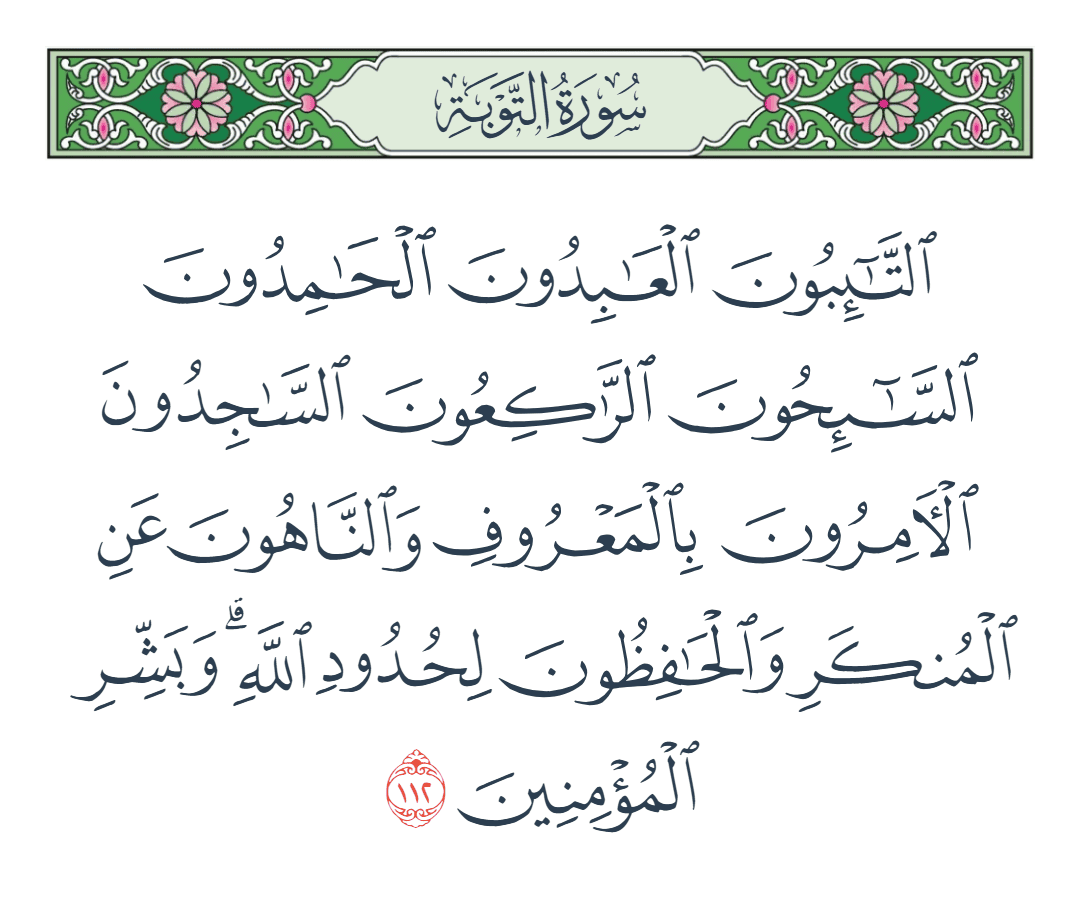 سُورَةُ التَّوْبَةِ
ٱلتَّـٰٓئِبُونَ ٱلْعَـٰبِدُونَ ٱلْحَـٰمِدُونَ
ٱلسَّـٰٓئِحُونَ ٱلرَّٰكِعُونَ ٱلسَّـٰجِدُونَ
ٱلْـَٔامِرُونَ بِٱلْمَعْرُوفِ وَٱلنَّاهُونَ عَنِ
ٱلْمُنكَرِ وَٱلْحَـٰفِظُونَ لِحُدُودِ ٱللَّهِ ۗ وَبَشِّرِ
ٱلْمُؤْمِنِينَ ١١٢